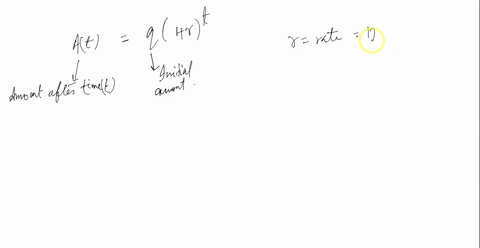 A(t) = q(1+r)^t
r = rate = 
Amount after time(t)
Initial
amount.